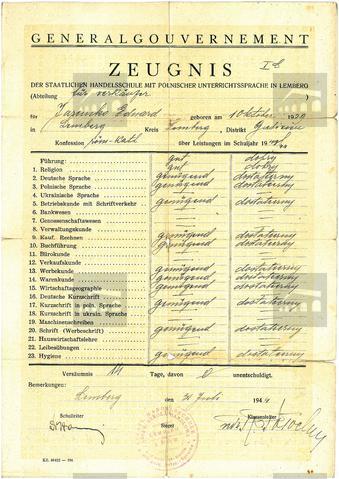 GENERALGOUVERNEMENT
ZEUGNIS I b
DER STAATLICHEN HANDELSSCHULE MIT POLNISCHER UNTERRICHTSSPRACHE IN LEMBERG
(Abteilung für Verkäufer)
für Edward geboren am 10 Oktober 1930
in Lemberg Kreis Lemberg, Distrikt Galizien
Konfession röm-kath über Leistungen im Schuljahr
Führung: gut dobry
1. Religion gut dobry
2. Deutsche Sprache genügend dostateczny
3. Polnische Sprache genügend dostateczny
4. Ukrainische Sprache
5. Betriebskunde mit Schriftverkehr genügend dostateczny
6. Bankwesen
7. Genossenschaftswesen
8. Verwaltungskunde
9. Kauf. Rechnen genügend dostateczny
10. Buchführung genügend dostateczny
11. Bürokunde
12. Verkaufskunde
13. Werbekunde genügend dostateczny
14. Warenkunde genügend dostateczny
15. Wirtschaftsgeographie genügend dostateczny
16. Deutsche Kurzschrift
17. Kurzschrift in poln. Sprache genügend dostateczny
18. Kurzschrift in ukrain. Sprache
19. Maschinenschreiben
20. Schrift (Werbeschrift) genügend dostateczny
21. Hauswirtschaftslehre
22. Leibesübungen
23. Hygiene genügend dostateczny
Versäumnis Tage, davon 0 unentschuldigt.
Bemerkungen:
Lemberg den 194
Schulleiter Siegel Klassenleiter